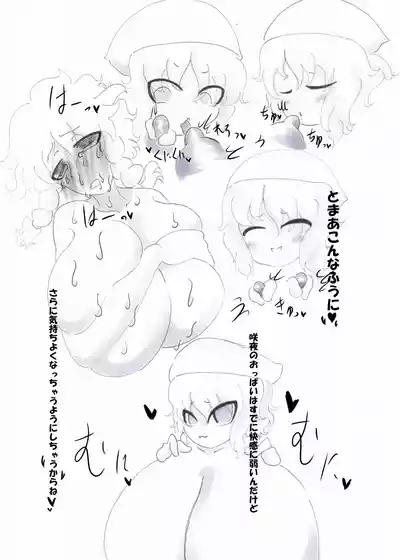 ちゅっ♥
ちゅっ♥
れろっ♥
くにくに
はーっ♥
はーっ♥
とまあこんなふうに♥
きゅっ♥
咲夜のおっぱいはすでに快感に弱いんだけど
さらに気持ちよくなっちゃうようにしちゃうからね♥
むに
むに